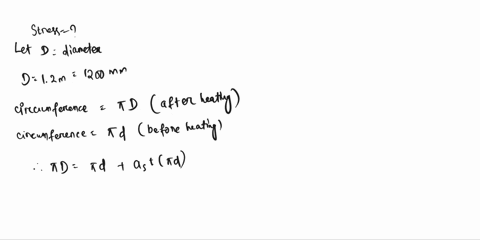 Stress=?
Let D= diameter
D=1.2m = 1200 mm
circumference = πD (after heating)
circumference = πd (before heating)
∴ πD = πd + αst(πd)